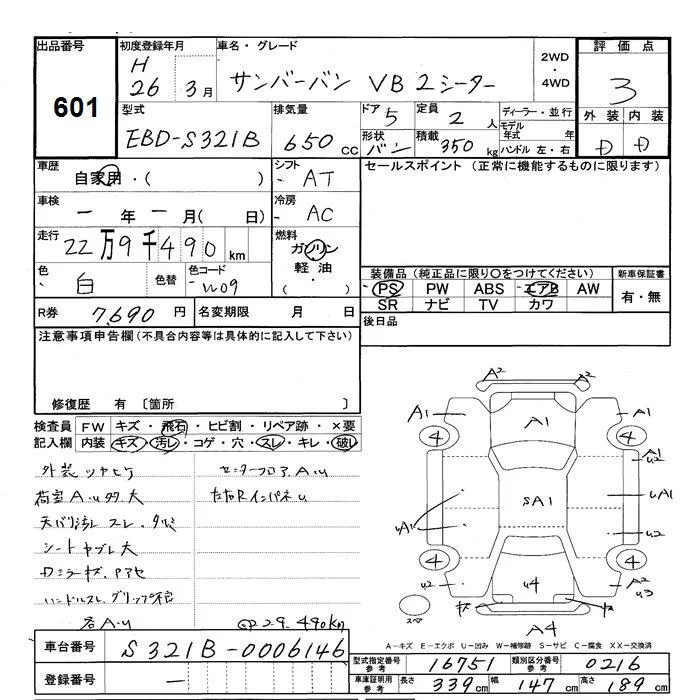 出品番号 初度登録年月 車名・グレード 2WD・4WD 評価点
601 H 26 3月 サンバーバン VB 2シーター 3
型式 排気量 ドア 5 定員 2人 ディーラー・並行 外装 内装
EBD-S321B 650cc 形状 バン 積載 350kg モデル年式 年 ハンドル 左・右 D D
車歴 自家用・( ) シフト AT セールスポイント (正常に機能するものに限ります)
車検 一年一月( 日) 冷房 AC
走行 22万9千490km 燃料 ガソリン 軽油 ・( )
色 白 色替 色コード W09
装備品 (純正品に限り〇をつけてください) 新車保証書
PS PW ABS エアB AW 有・無
SR ナビ TV カワ
R券 7,690円 名変期限 月 日 後日品
注意事項申告欄(不具合内容等は具体的に記入して下さい)
修復歴 有 〔箇所 〕
検査員記入欄 FW キズ・飛石・ヒビ割・リペア跡・×要
内装 キズ・汚レ・コゲ・穴・スレ・キレ・破レ
外装ツヤヒケ センターフロアA.u
荷室A.u多大
シートヤブレ大
各A.u
@229.490km
A2 A2
A1 A1 A1
4 4
A1 u2
SA1 uA1
uA1 u2
4 4
u2 u4 A2 u3
スペア A4
A-キズ E-エクボ U-凹み W-補修跡 S-サビ C-腐食 XX-交換済
車台番号 S321B-0006146
登録番号 一
型式指定番号 参考 16751 類別区分番号 参考 0216
車庫証明用 参考 長さ 339cm 幅 147cm 高さ 189cm